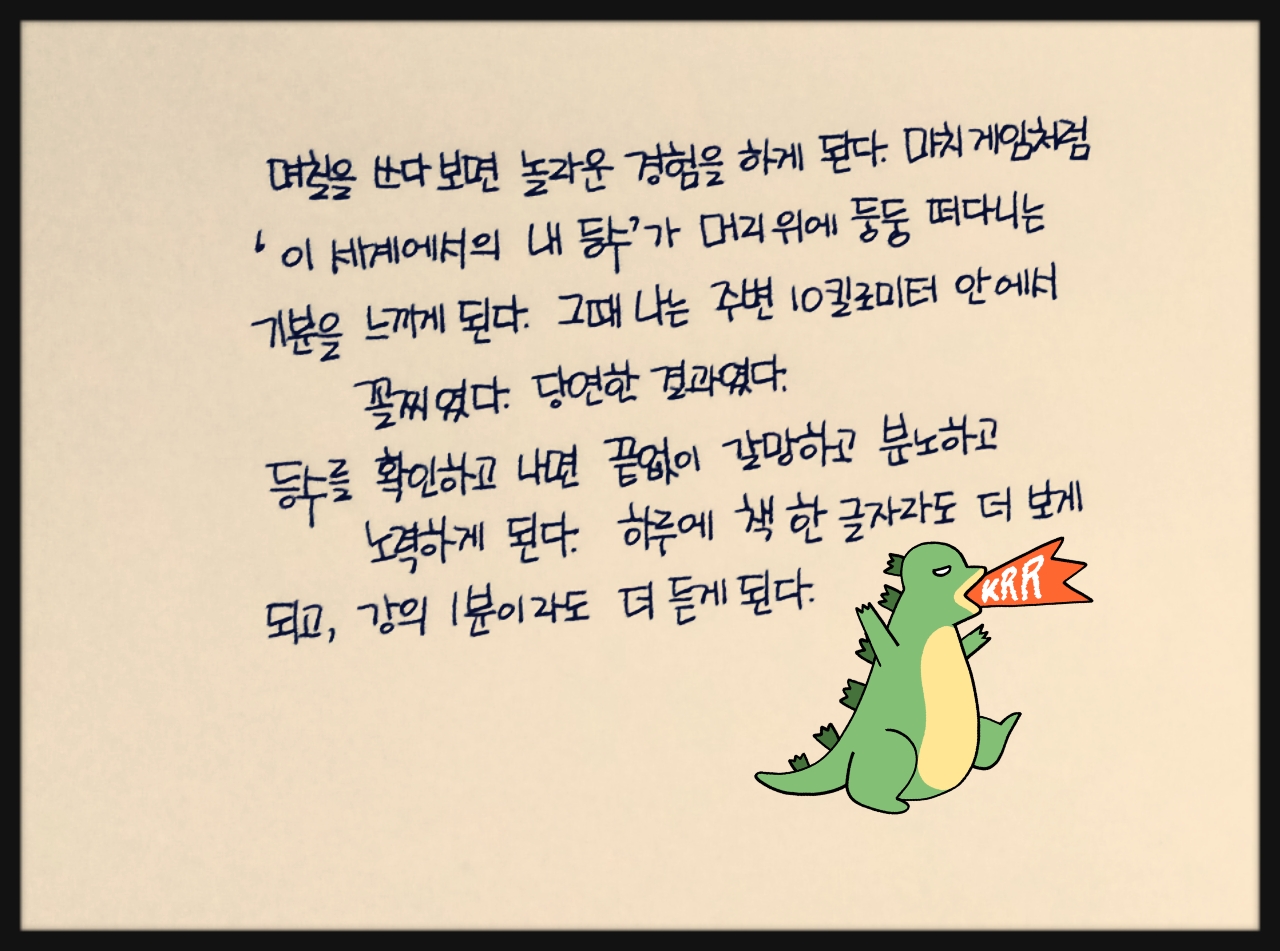 며칠을 쓰다보면 놀라운 경험을 하게 된다. 마치 게임처럼
‘이 세계에서의 내 등수’가 머리 위에 둥둥 떠다니는
기분을 느끼게 된다. 그때 나는 주변 10킬로미터 안에서
꼴찌였다. 당연한 결과였다.
등수를 확인하고 나면 끝없이 갈망하고 분노하고
노력하게 된다. 하루에 책 한 글자라도 더 보게
되고, 강의 1분이라도 더 듣게 된다.
KRR